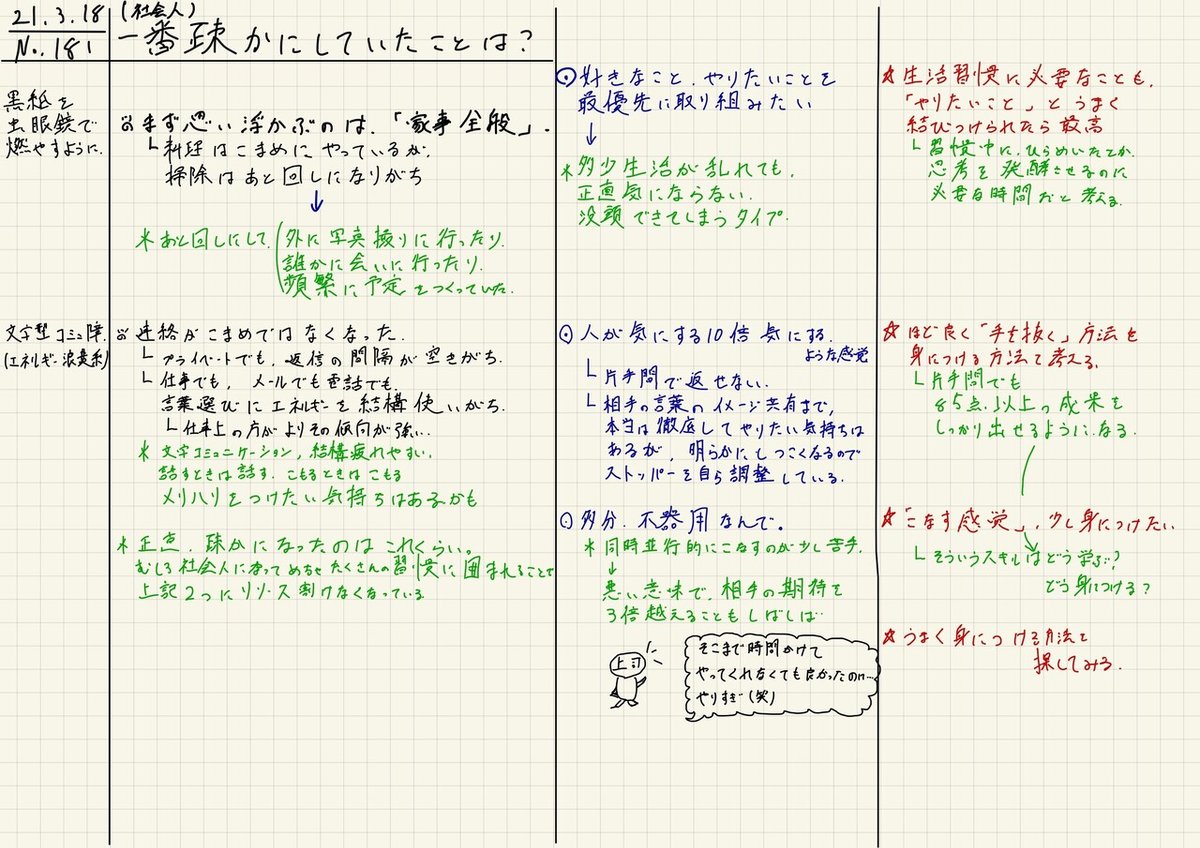 21.3.18
No.181
(社会人)
一番疎かにしていたことは?
黒紙を
虫眼鏡で
燃やすように.
まず思い浮かぶのは,「家事全般」.
料理はこまめにやっているが,
掃除はあと回しになりがち
↓
*あと回しにして,外に写真撮りに行ったり,
誰かに会いに行ったり,
頻繁に予定をつくっていた.
文字型コミュ障.
(エネルギー浪費系)
連絡がこまめではなくなった.
プライベートでも,返信の間隔が空きがち.
仕事でも,メールでも電話でも,
言葉選びにエネルギーを結構使いがち.
仕事上の方がよりその傾向が強い..
*文字コミュニケーション,結構疲れやすい.
話すときは話す.こもるときはこもる
メリハリをつけたい気持ちはあるかも
*正直,疎かになったのはこれくらい。
むしろ社会人になってめちゃたくさんの習慣に囲まれることで
上記2つにリソース割けなくなっている
⊙好きなこと,やりたいことを
最優先に取り組みたい
↓
*多少生活が乱れても,
正直気にならない.
没頭できてしまうタイプ.
⊙人が気にする10倍気にする.
ような感覚
片手間で返せない.
相手の言葉のイメージ共有まで,
本当は徹底してやりたい気持ちは
あるが,明らかにしつこくなるので
ストッパーを自ら調整している.
⊙多分,不器用なんで。
*同時並行的にこなすのが少し苦手.
↓
悪い意味で,相手の期待を
3倍越えることもしばしば…
上司
そこまで時間かけて
やってくれなくても良かったのに…
やりすぎ(笑)
☆生活習慣に必要なことも,
「やりたいこと」とうまく
結びつけられたら最高
習慣中に,ひらめいたとか,
思考を発酵させるのに
必要な時間だと考える.
☆ほど良く「手を抜く」方法を
身につける方法を考える.
片手間でも
85点以上の成果を
しっかり出せるようになる.
☆「こなす感覚」,少し身につけたい
そういうスキルはどう学ぶ?
どう身につける?
☆うまく身につける方法を
探してみる.